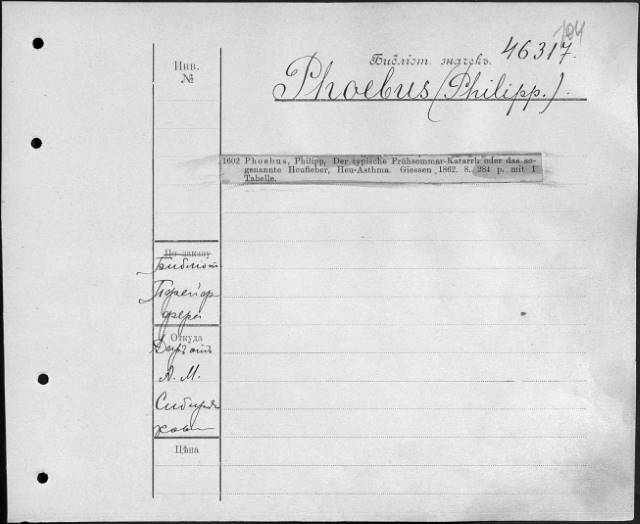 194
46317.
Инв.
№
Библіот. значекъ.
Phoebus (Philipp.).
1602 Phoebus, Philipp, Der typische Frühsommar-Katarrh oder das so-
genannte Heufieber, Heu-Asthma. Giessen 1862. 8. 284 p. mit 1
Tabelle.
По заказу
Библіот
Пфейф
фера
Откуда
Даръ отъ
А. М.
Сибиря
кова
Цѣна